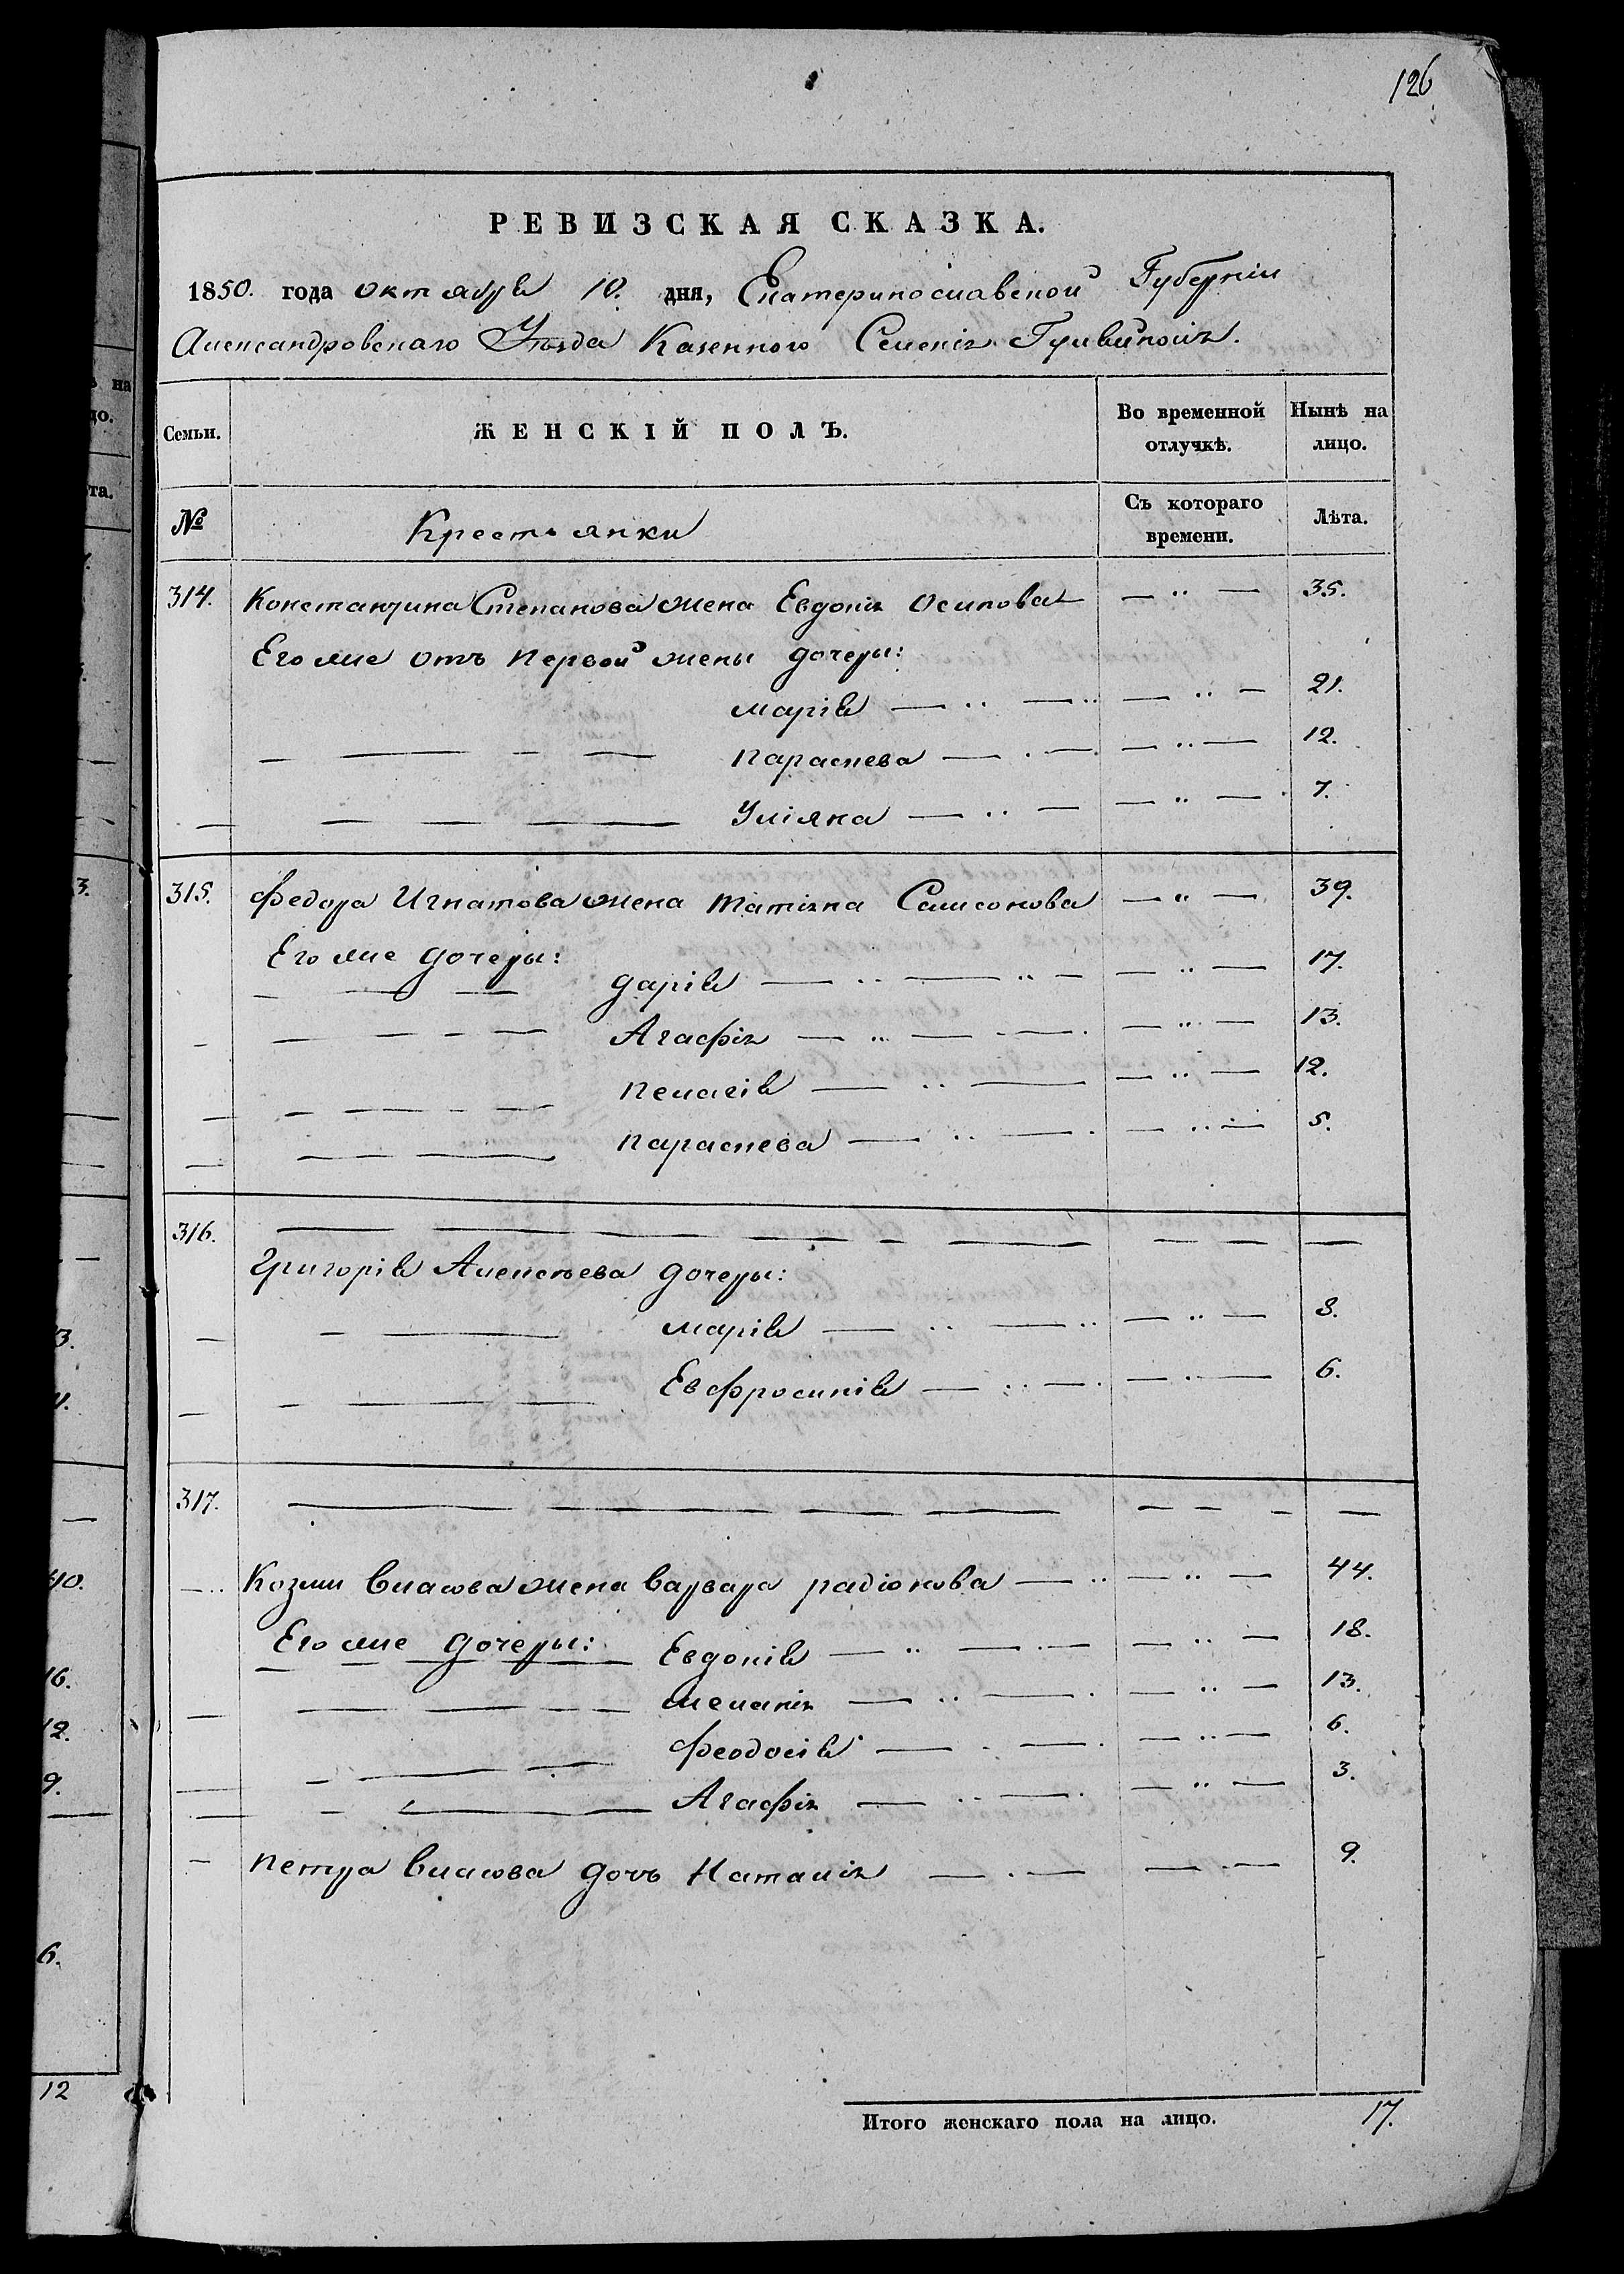 126
РЕВИЗСКАЯ СКАЗКА.
1850. года октября 10. дня, Екатеринославской Губерніи
Александровскаго Уѣзда Казенного Селенія Гуляйполя.
Семьи. ЖЕНСКІЙ ПОЛЪ. Во временной отлучкѣ. Нынѣ на лицо.
№ Крестьянки Съ котораго времени. Лѣта.
314. Константина Степанова жена Евдокія Осипова — " — 35.
Его же отъ первой жены дочеры:
Марія — " — 21.
Параскева — " — 12.
Уліяна — " — 7.
315. Федора Игнатова жена Татіяна Самсонова — " — 39.
Его же дочеры:
Дарія — " — 17.
Агафія — " — 13.
Пелагія — " — 12.
Параскева — " — 5.
316. — — — — —
Григорія Алексѣева дочеры:
Марія — " — 8.
Евфросинія — " — 6.
317. — — — — —
Козмы Власова жена Варвара Радіонова — " — 44.
Его же дочеры: Евдокія — " — 18.
Меланія — " — 13.
Феодосія — " — 6.
Агафія — " — 3.
Петра Власова дочь Наталія — " — 9.
Итого женскаго пола на лицо. 17.
на
до.
та.
3.
40.
16.
12.
9.
6.
12